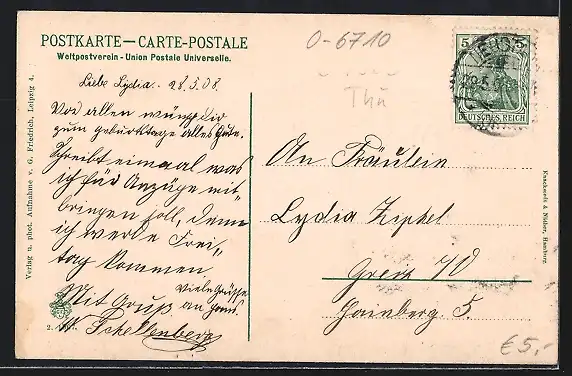 POSTKARTE—CARTE-POSTALE
Weltpostverein - Union Postale Universelle.
O-6710
Thü
Liebe Lydia. 28.5.08.
Vor allen wünsche
zum Geburtstage alles Gute.
Schreibt einmal was
ich für Anzüge mit-
bringen soll, denn
ich werde Frei-
tag kommen.
Viele Grüsse
Mit Gruß an
W. Schellenberg
An Fräulein
Lydia Zipfel
Greiz
5.
5
DEUTSCHES REICH
Verlag u. phot. Aufnahme v. G. Friedrich, Leipzig 4.
Knackstedt & Näther, Hamburg.
2.
€5,-